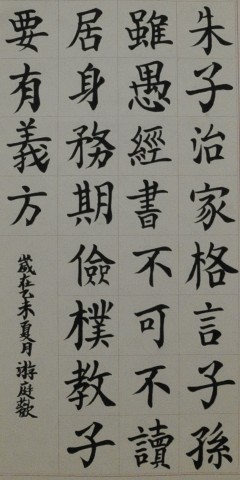 朱子治家格言子孫
雖愚經書不可不讀
居身務期儉樸教子
要有義方
歲在乙未夏月游庭歡